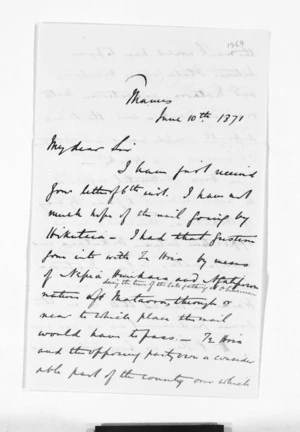 1969
Thames
June 10th 1871
My dear Sir
I have just received
your letter of 6th inst. I have not
much hope of the mail going by
Hikutaia - I had that question
gone into with Te Hira by means
of Nepia, and
during the time of the late gathering
natives at Mataora, through or
near to which place the mail
would have to pass - Te Hira
and the opposing party own a consider
able part of the country over which